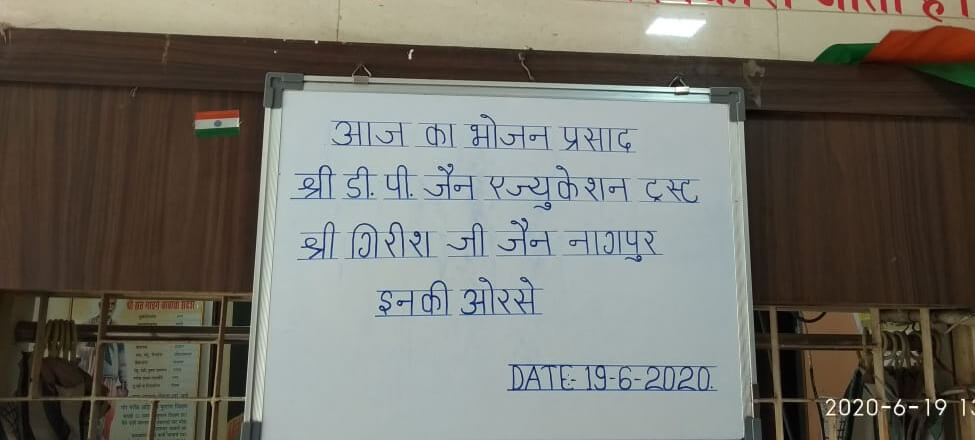 आज का भोजन प्रसाद
श्री डी. पी. जैन एज्युकेशन ट्रस्ट
श्री गिरीश जी जैन नागपुर
इनकी ओरसे
DATE:- 19-6-2020.
2020-6-19 13